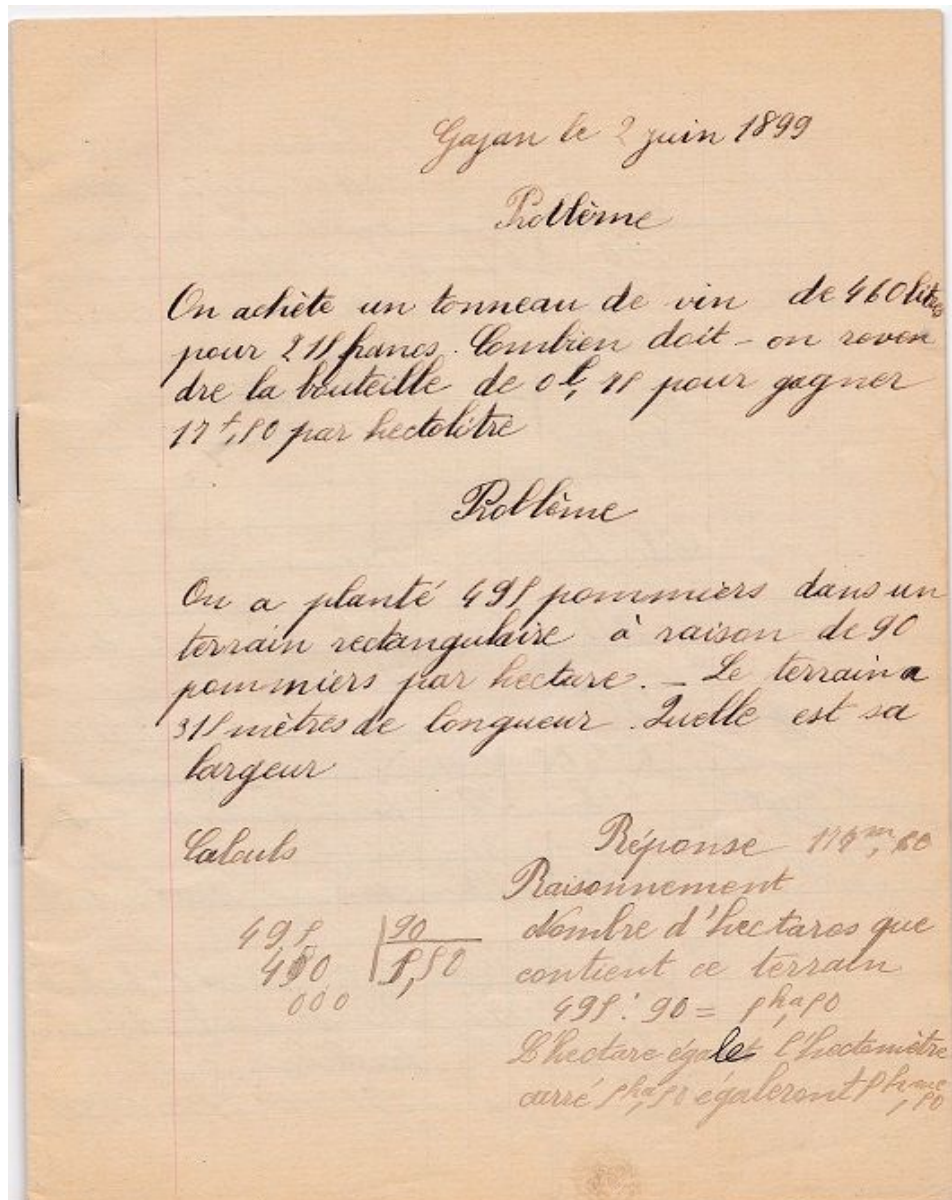 Gajan le 2 juin 1899
Problème
On achète un tonneau de vin de 460 litres
pour 215 francs. Combien doit-on reven
dre la bouteille de 0l,75 pour gagner
17f,50 par hectolitre
Problème
On a planté 495 pommiers dans un
terrain rectangulaire à raison de 90
pommiers par hectare. — Le terrain a
315 mètres de longueur. Quelle est sa
largeur
Calculs
495 | 90
450 | 5,50
000
Réponse 174m,60
Raisonnement
Nombre d'hectares que
contient ce terrain
495 : 90 = 5ha,50
L'hectare égale l'hectomètre
carré 5ha,50 égaleront 5hmc,50